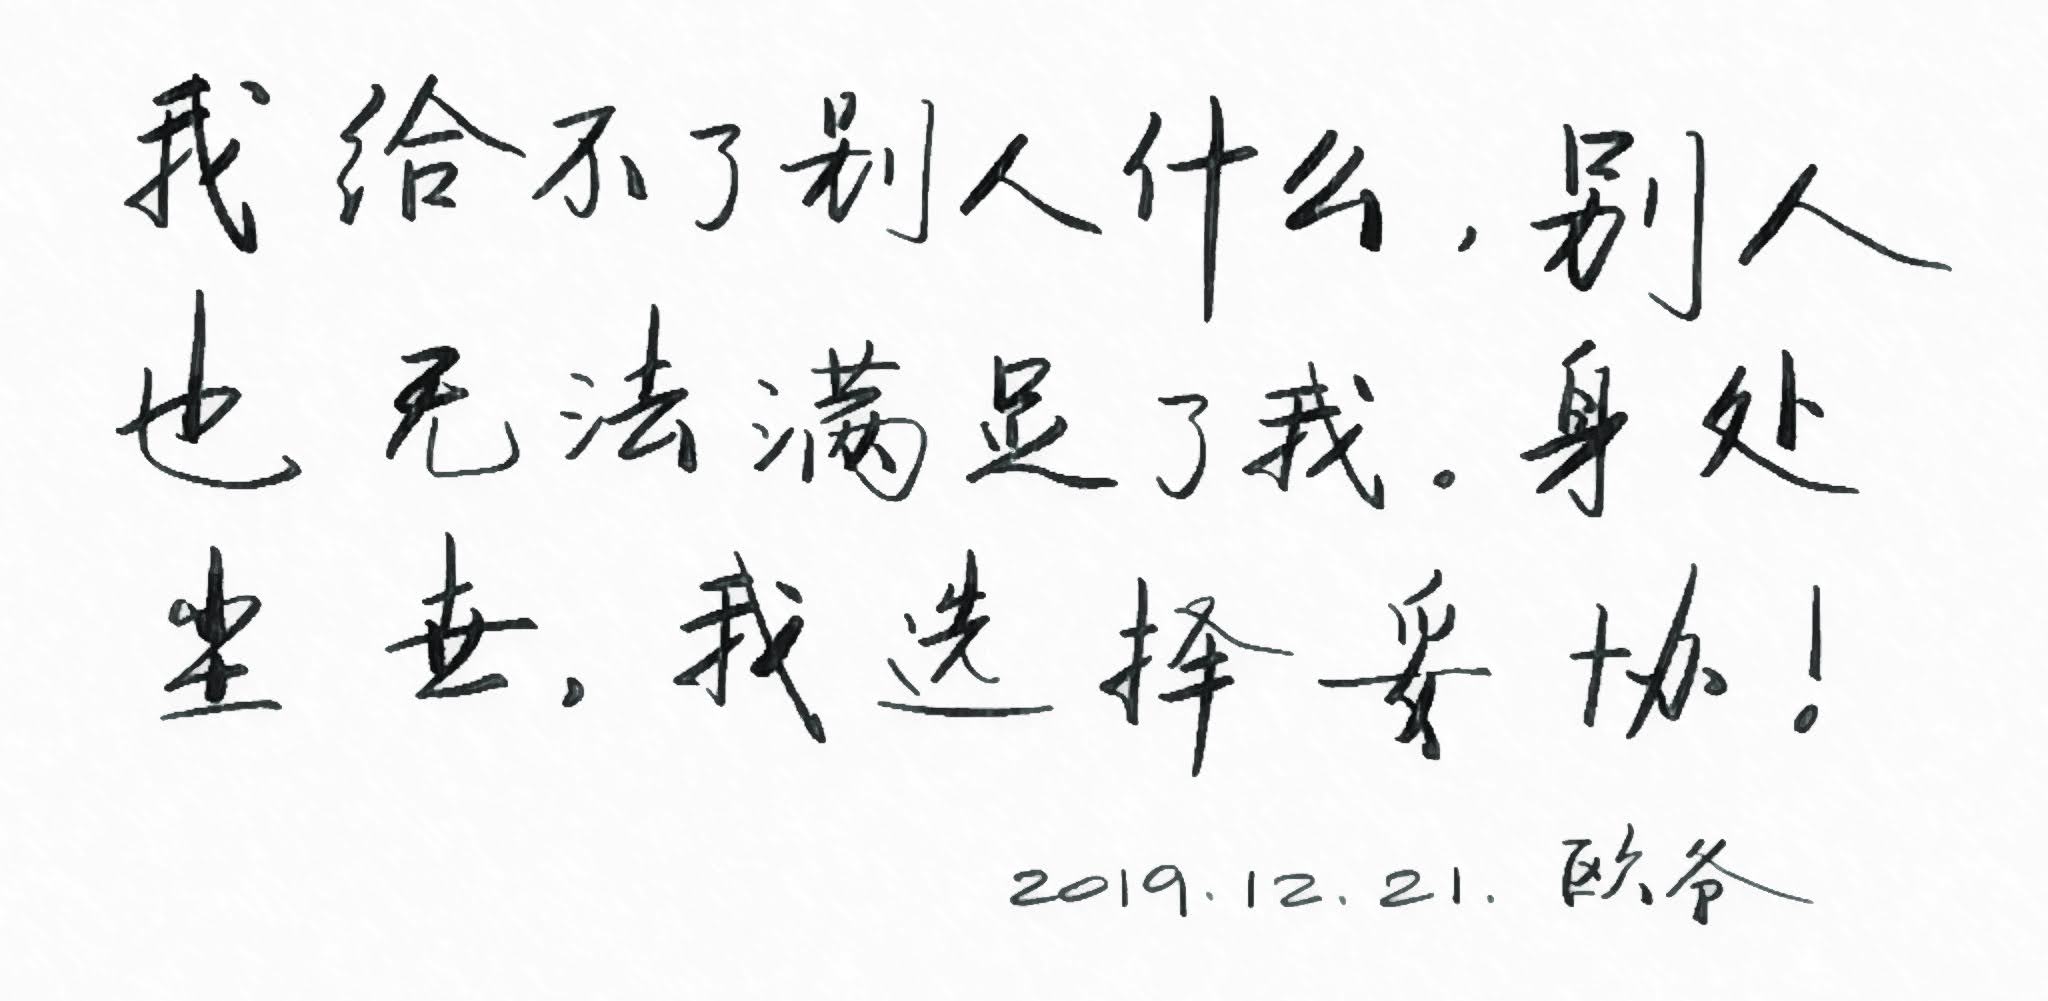 我给不了别人什么,别人
也无法满足了我.身处
尘世,我选择妥协!
2019.12.21.欧爷